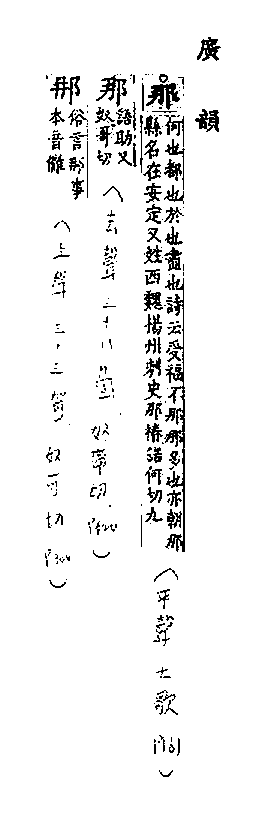 廣韻
那 何也都也於也盡也詩云受福不那那多也亦朝那
縣名在安定又姓西魏楊州刺史那椿諾何切九
（平聲 七歌 韻）
那 語助又
奴哥切
（去聲 三十八箇 奴箇切
那 俗言那事
本音儺
（上聲 三十三哿 奴可切